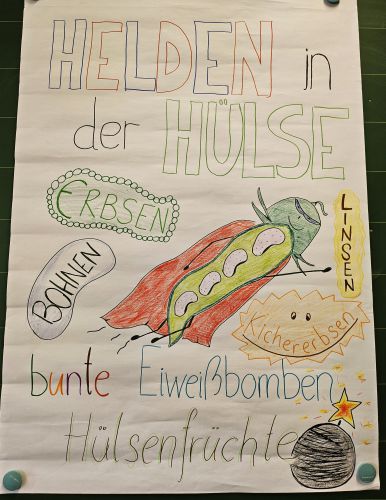 HELDEN in
der HÜLSE
ERBSEN
LINSEN
BOHNEN
Kichererbsen
bunte Eiweißbomben
Hülsenfrüchte